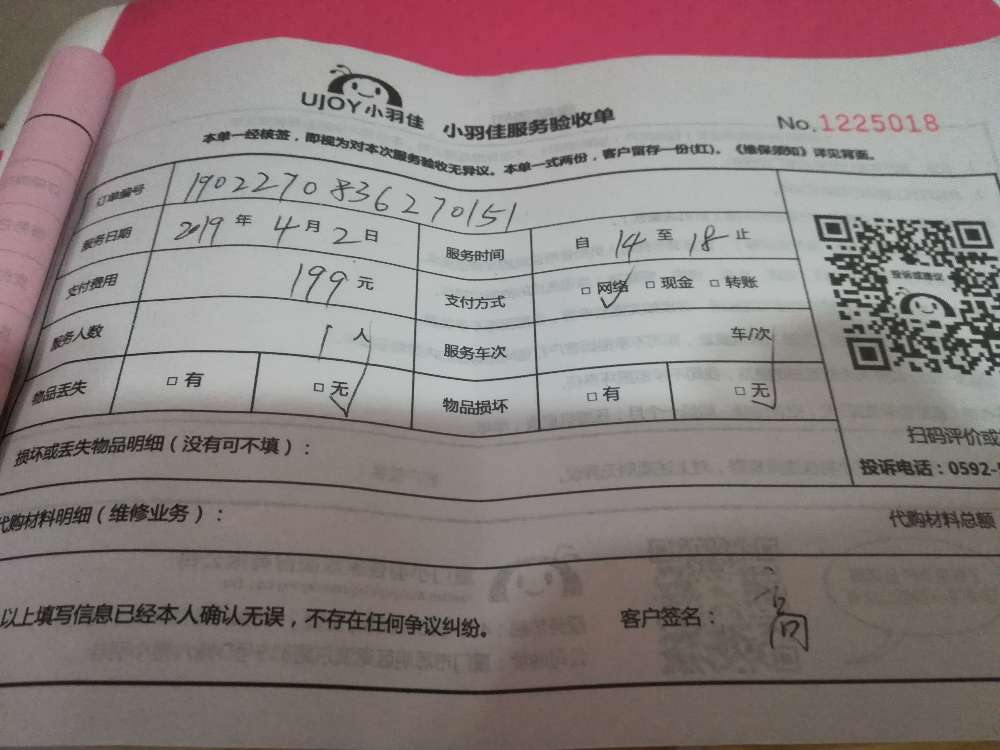 UJOY小羽佳 小羽佳服务验收单 No.1225018
本单一经核签，即视为对本次服务验收无异议。本单一式两份，客户留存一份(红)。《维保须知》详见背面。
订单编号 1902270836270151
服务日期 2019 年 4 月 2 日 服务时间 自 14 至 18 止
支付费用 199 元 支付方式 □ 网络 □ 现金 □ 转账
服务人数 1 人 服务车次 车/次
物品丢失 □ 有 □ 无 物品损坏 □ 有 □ 无
投诉或建议
扫码评价或
投诉电话：0592-
损坏或丢失物品明细（没有可不填）：
代购材料明细（维修业务）： 代购材料总额
以上填写信息已经本人确认无误，不存在任何争议纠纷。 客户签名：